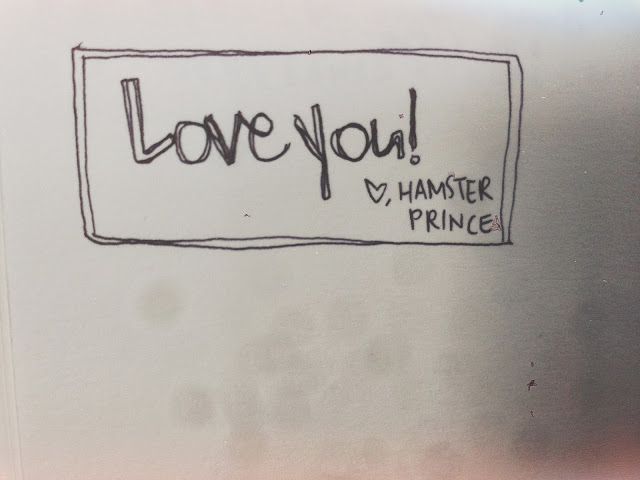 Love you!
♡, HAMSTER
PRINCE